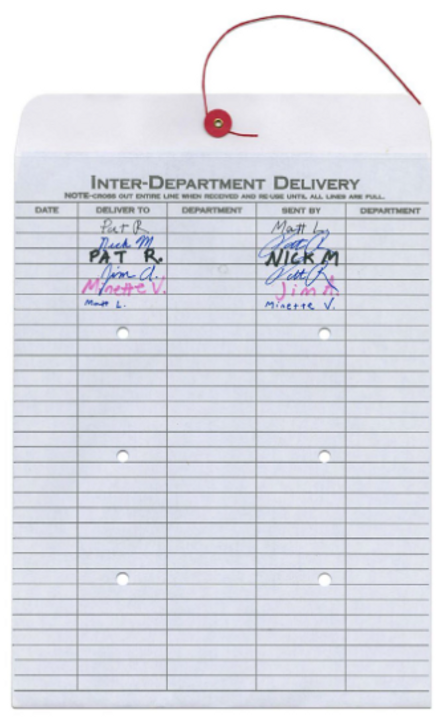 INTER-DEPARTMENT DELIVERY
NOTE-CROSS OUT ENTIRE LINE WHEN RECEIVED AND RE-USE UNTIL ALL LINES ARE FULL.
DATE DELIVER TO DEPARTMENT SENT BY DEPARTMENT
Pat R Matt L.
Nick M
PAT R. NICK M
Jim A.
Minette V. Jim A.
Matt L. Minette V.